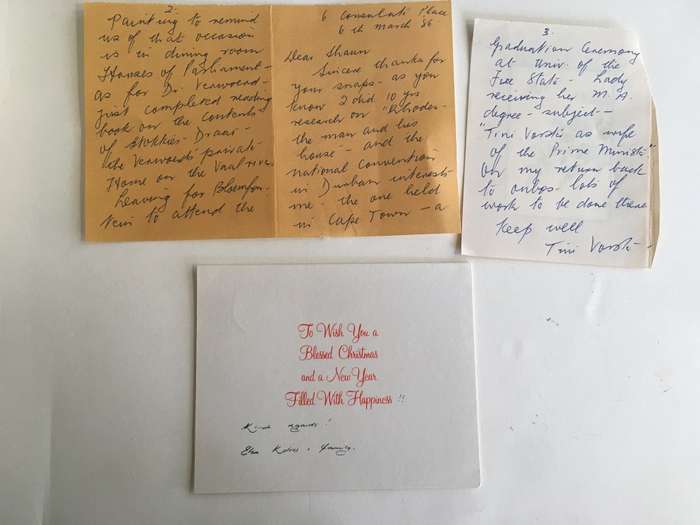 6 Consulate Place
6th March '86.
Dear Shaun
Sincere thanks for
your snaps - as you
know I did 10 yrs
research on "Rhodes -
the man and his
house" - and the
national Convention
in Durban interests
me - the one held
in Cape Town - a
2.
Painting to remind
us of that occasion
is in dining room
Houses of Parliament -
as for Dr. Verwoerd -
just completed reading
book on the contents
of Stokkies-Draai -
the Verwoerds' private
Home on the Vaal river.
Leaving for Bloemfon-
tein to attend the
3.
Graduation Ceremony
at Univ. of the
Free State - Lady
receiving her M.A.
degree - subject -
"Tini Vorster as wife
of the Prime Minister"
On my return back
to lots of
work to be done there
Keep well
Tini Vorster
To Wish You a
Blessed Christmas
and a New Year
Filled With Happiness !!
Kind regards!
family.